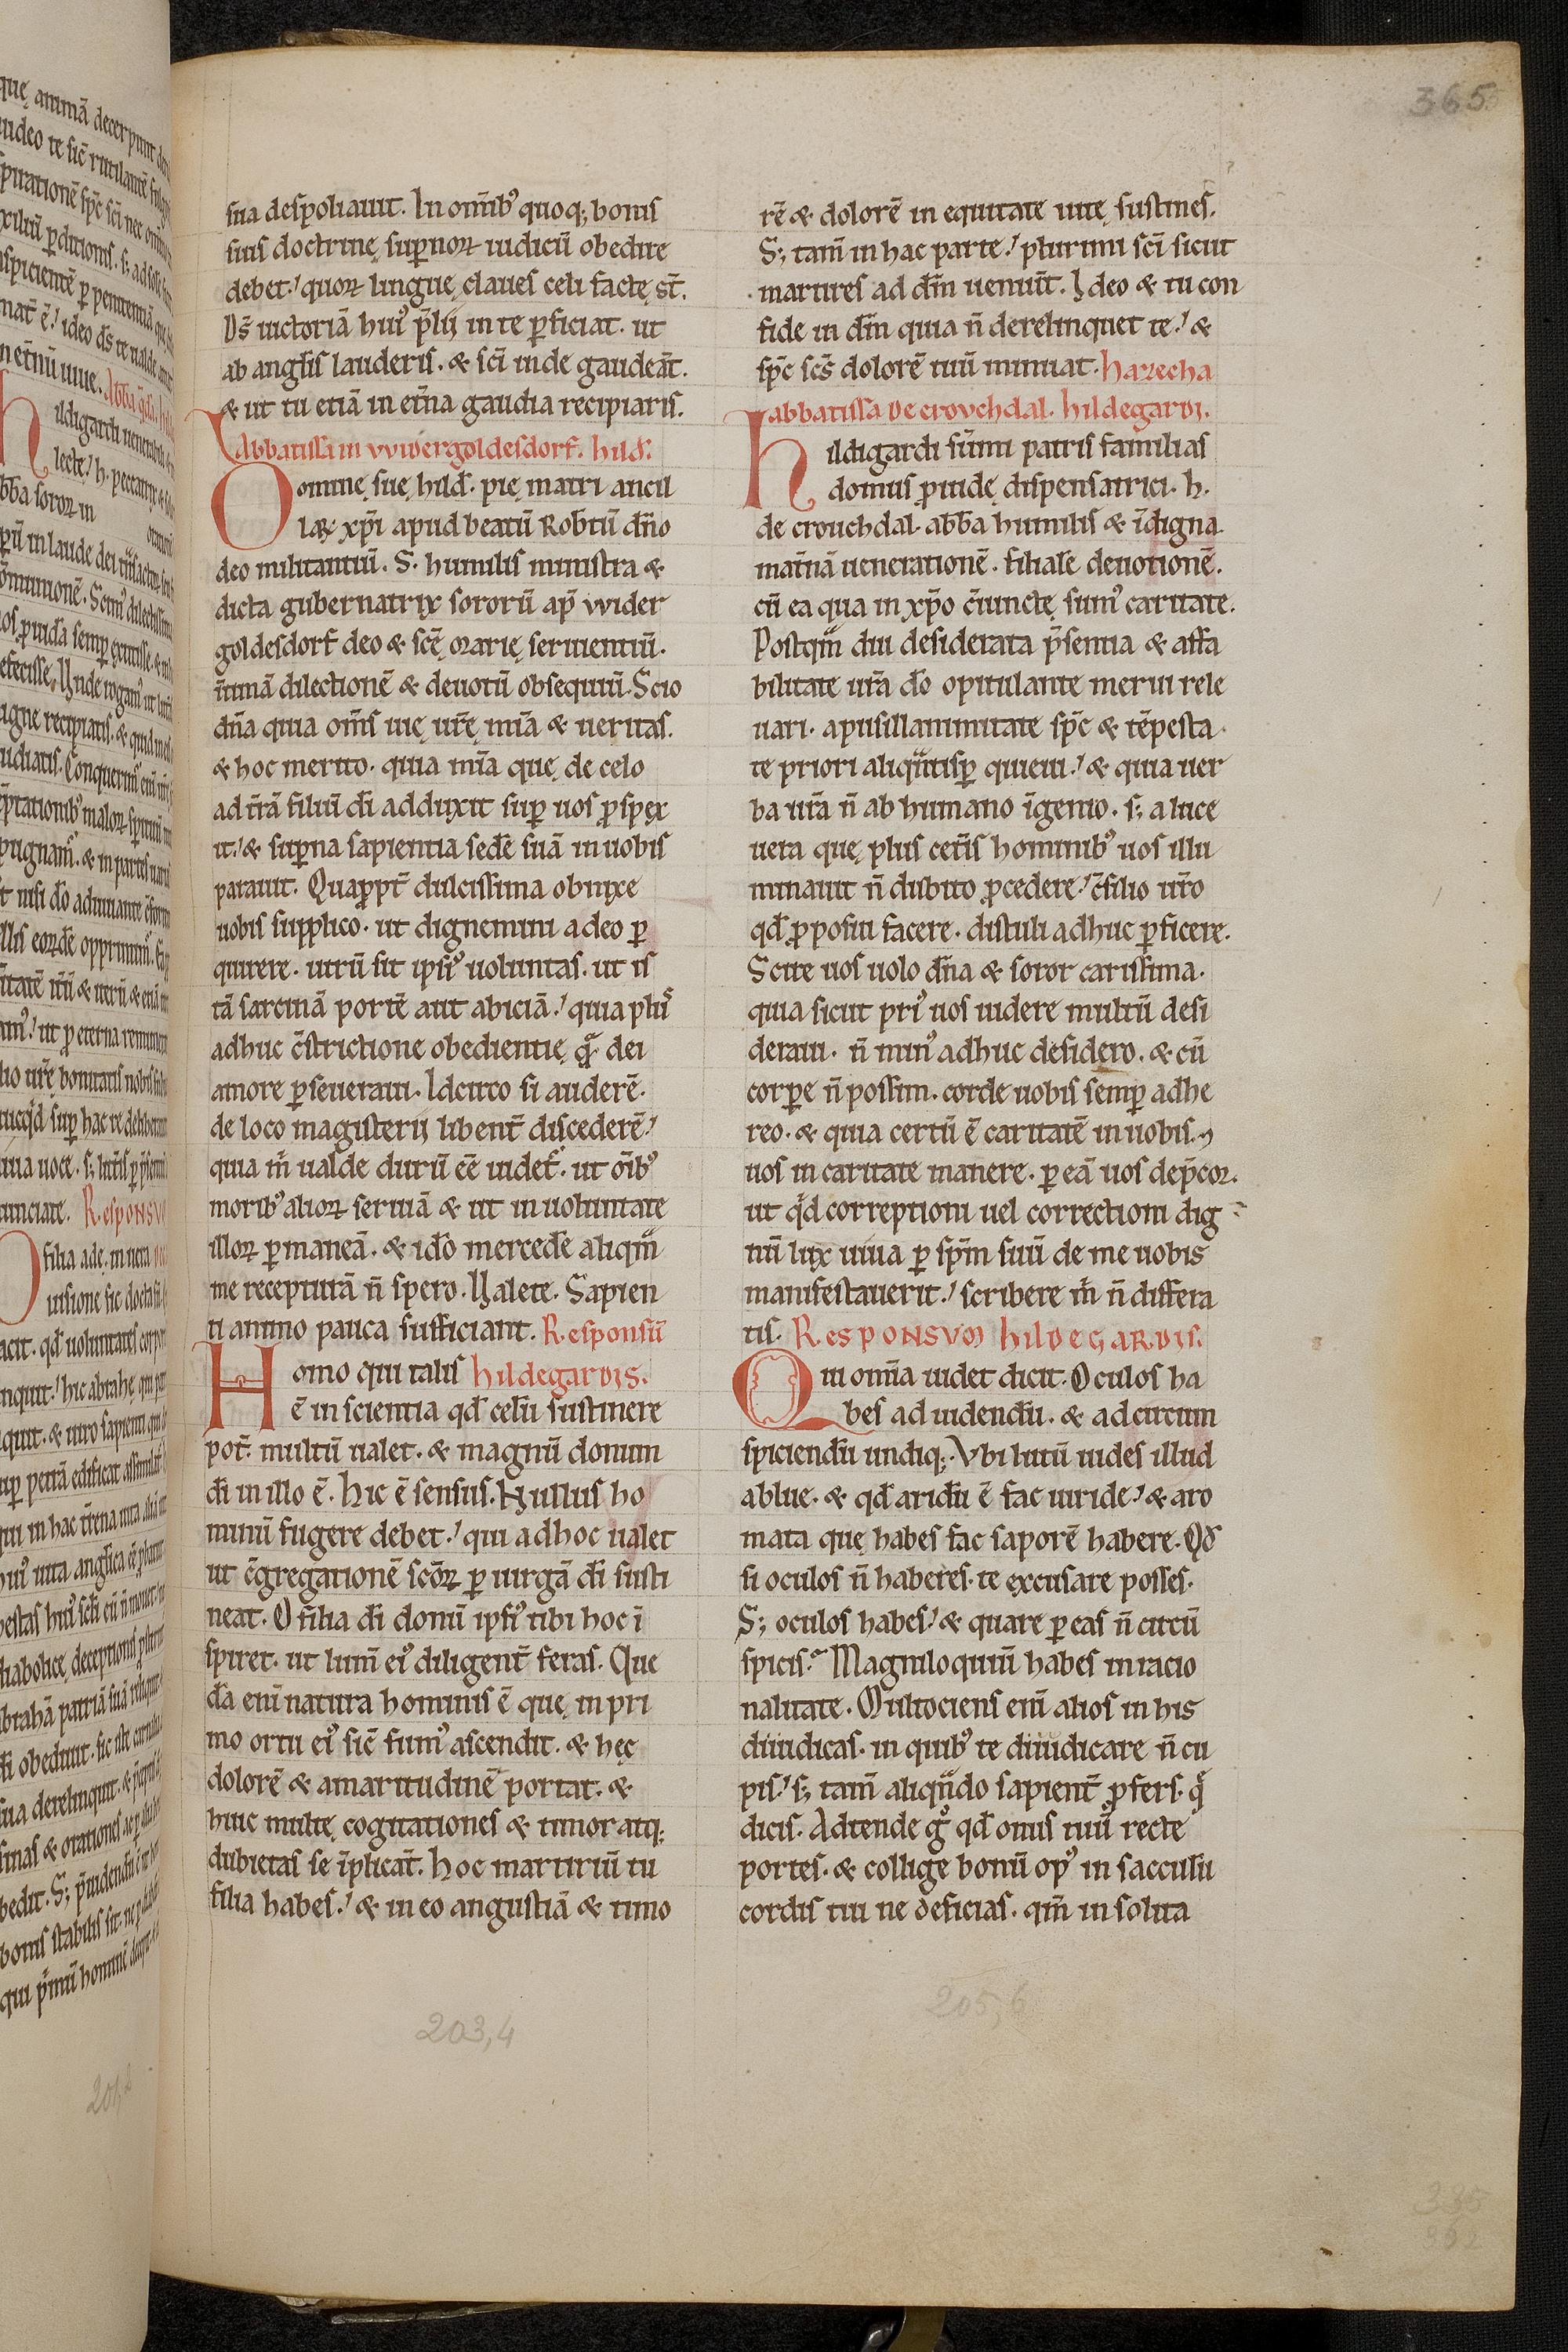 365
sua despoliauit. In om̄ib⁹ quoq; bonis
suis doctrinę sup̄noꝝ iudiciū obedire
debet! quoꝝ linguę claues celi factę st̄.
D̄s uictoriā hui⁹ p̄lij in te ꝑficiat. ut
ab angl̄is lauderis. & sc̄i inde gaudeāt.
& ut tu etiā in et̄na gaudia recipiaris.
Abbatissa in vvidergoldesdorf. hild̄.
Domine sue hild̄. pię matri ancil
larꝫ xp̄i apud beatū Rob̄tū dn̄o
deo militantiū. S. humilis ministra &
dicta gubernatrix sororū ap̄ vvider
goldesdorf deo & scē marię seruientiū.
ītimā dilectionē & deuotū obsequiū. Scio
dn̄a quia om̄s uię ur̄ę mīa & ueritas.
& hoc merito. quia mīa que de celo
ad t̄rā filiū di adduxit sup uos ꝓspex
it! & sup̄na sapientia sedē suā in uobis
parauit. Quappt̄ dulcissima obnixe
uobis supplico. ut dignemini a deo ꝑ
quirere. utrū sit ipsi⁹ uoluntas. ut is
tā sarcinā portē aut abiciā! quia plus
adhuc c̄strictione obedientię q̄ dei
amore ꝑseueraui. Idcirco si auderē.
de loco magisterij libent̄ discederē!
quia m̄ ualde durū eē uidet̄. ut oīb⁹
morib⁹ alioꝝ seruiā & ut in uoluntate
illoꝝ ꝑmaneā. & ido mercedē aliqm̄
me recepturā n̄ spero. Ualete. Sapien
ti animo pauca sufficiant. Responsū
Homo qui talis hildegardis.
ē in scientia qd̄ celū sustinere
pot̄. multū ualet. & magnū donum
di in illo ē. Hic ē sensus. Nullus ho
minū fugere debet! qui ad hoc ualet
ut c̄gregationē scōꝝ ꝑ uirgā di susti
neat. O filia di donū ipsi⁹ tibi hoc ī
spiret. ut lum̄ ei⁹ diligent̄ feras. Que
dā enī natura hominis ē que in pri
mo ortu ei⁹ sic̄ fum⁹ ascendit. & hęc
dolorē & amaritudinē portat. &
huic multę cogitationes & timor atq;
dubietas se īplicat̄. Hoc martiriū tu
filia habes! & in eo angustiā & timo
rē & dolorē in equitate uitę sustines.
S; tam̄ in hac parte! plurimi sc̄i sicut
martires ad dn̄m uenuīt. Ideo & tu con
fide in dn̄m quia n̄ derelinquet te! &
sp̄c sc̄s dolorē tuū minuat. hazecha
abbatissa de crouchdal. hildegardi.
Hildigardi sūmi patris familias
domus ꝓuidę dispensatrici. h.
de crouchdal. abb̄a humilis & īdigna
mat̄nā uenerationē. filialē deuotionē.
cū ea qua in xp̄o c̄iunctę sum⁹ caritate.
Postqm̄ diu desiderata p̄sentia & affa
bilitate ur̄a do opitulante merui rele
uari. a pusillanimitate sp̄c & tēpesta
te priori aliqn̄tisꝑ quieui! & quia uer
ba ur̄a n̄ ab humano īgenio. s; a luce
uera que plus cet̄is hominib⁹ uos illu
minauit n̄ dubito ꝓcedere! c̄silio ur̄o
qd̄ ꝓposui facere. distuli adhuc ꝑficere.
Scire uos uolo dn̄a & soror carissima.
quia sicut pri⁹ uos uidere multū desi
deraui. n̄ min⁹ adhuc desidero. & cū
corpe n̄ possim. corde uobis semp adhe
reo. & quia certū ē caritatē in uobis. ⁊
uos in caritate manere. ꝑ eā uos dep̄cor.
ut qd̄ correptioni uel correctioni dig
nū lux uiua ꝑ sp̄m suū de me uobis
manifestauerit! scribere m̄ n̄ differa
tis. Responsum hildegardis.
Qui om̄ia uidet dicit. Oculos ha
bes ad uidendū. & ad circum
spiciendū undiq;. Vbi lutū uides illud
ablue. & qd̄ aridū ē fac uiride! & aro
mata que habes fac saporē habere. Qd̄
si oculos n̄ haberes. te excusare posses.
S; oculos habes! & quare ꝑ eas n̄ circū
spicis. Magniloquiū habes in racio
nalitate. Multociens enī alios in his
diiudicas. in quib⁹ te diiudicare n̄ cu
pis! s; tam̄ aliqn̄do sapient̄ ꝓfers. q̄
dicis. Adtende g̊ qd̄ onus tuū recte
portes. & collige bonū op⁹ in sacculū
cordis tui ne deficias. qm̄ in solita
203,4
205,6
335
392